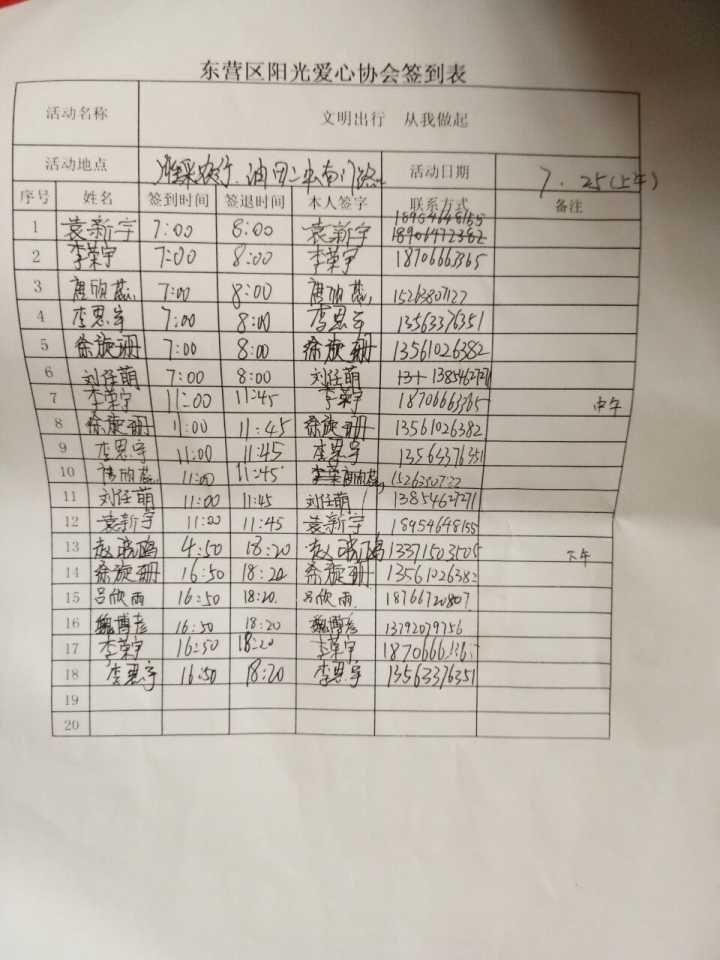 东营区阳光爱心协会签到表
活动名称 文明出行 从我做起
活动地点 油田二 南门路 活动日期 7.25(上午)
序号 姓名 签到时间 签退时间 本人签字 联系方式 备注
1 袁新宇 7:00 8:00 袁新宇 18954648155
2 李荣宇 7:00 8:00 李荣宇 18706663365
3 唐欣蕊 7:00 8:00 唐欣蕊 15263807127
4 李恩宇 7:00 8:00 李恩宇 13563376351
5 徐旋珊 7:00 8:00 徐旋珊 13561026382
6 刘任萌 7:00 8:00 刘任萌 13854627271
7 李荣宇 11:00 11:45 李荣宇 中午
8 徐旋珊 11:00 11:45 徐旋珊 13561026382
9 李恩宇 11:00 11:45 李恩宇 13563376351
10 唐欣蕊 11:00 11:45 唐欣蕊
11 刘任萌 11:00 11:45 刘任萌 13854627271
12 袁新宇 11:00 11:45 袁新宇 18954648155
13 赵 4:50 18:20 赵 13371503505 下午
14 徐旋珊 16:50 18:20 徐旋珊 13561026382
15 吕欣雨 16:50 18:20. 吕欣雨. 18766720807
16 魏博彦 16:50 18:20 魏博彦 13792079756
17 李荣宇 16:50 18:20 李荣宇
18 李恩宇 16:50 18:20 李恩宇 13563376351
19
20